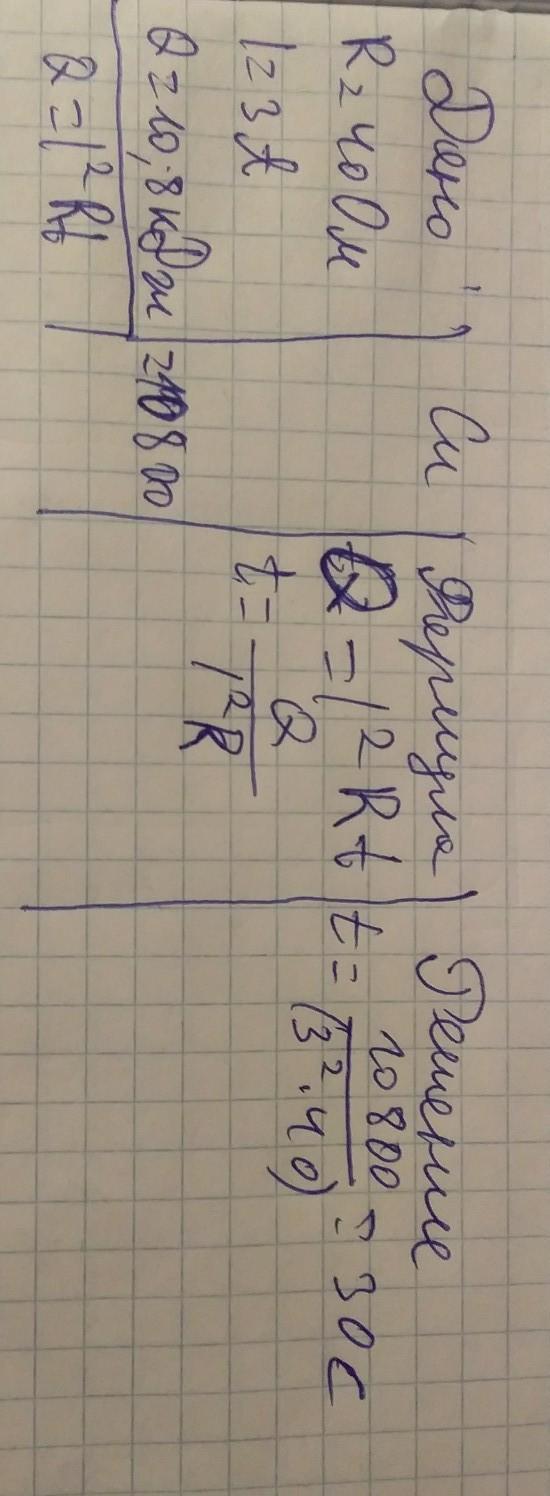 Дано:
R = 40 Ом
I = 3 A
Q = 10,8 кДж
Q = I²Rt
Си
= 10800
Формула
Q = I² Rt
t = Q / I²R
Решение
t = 10800 / (3² · 40) = 30 с